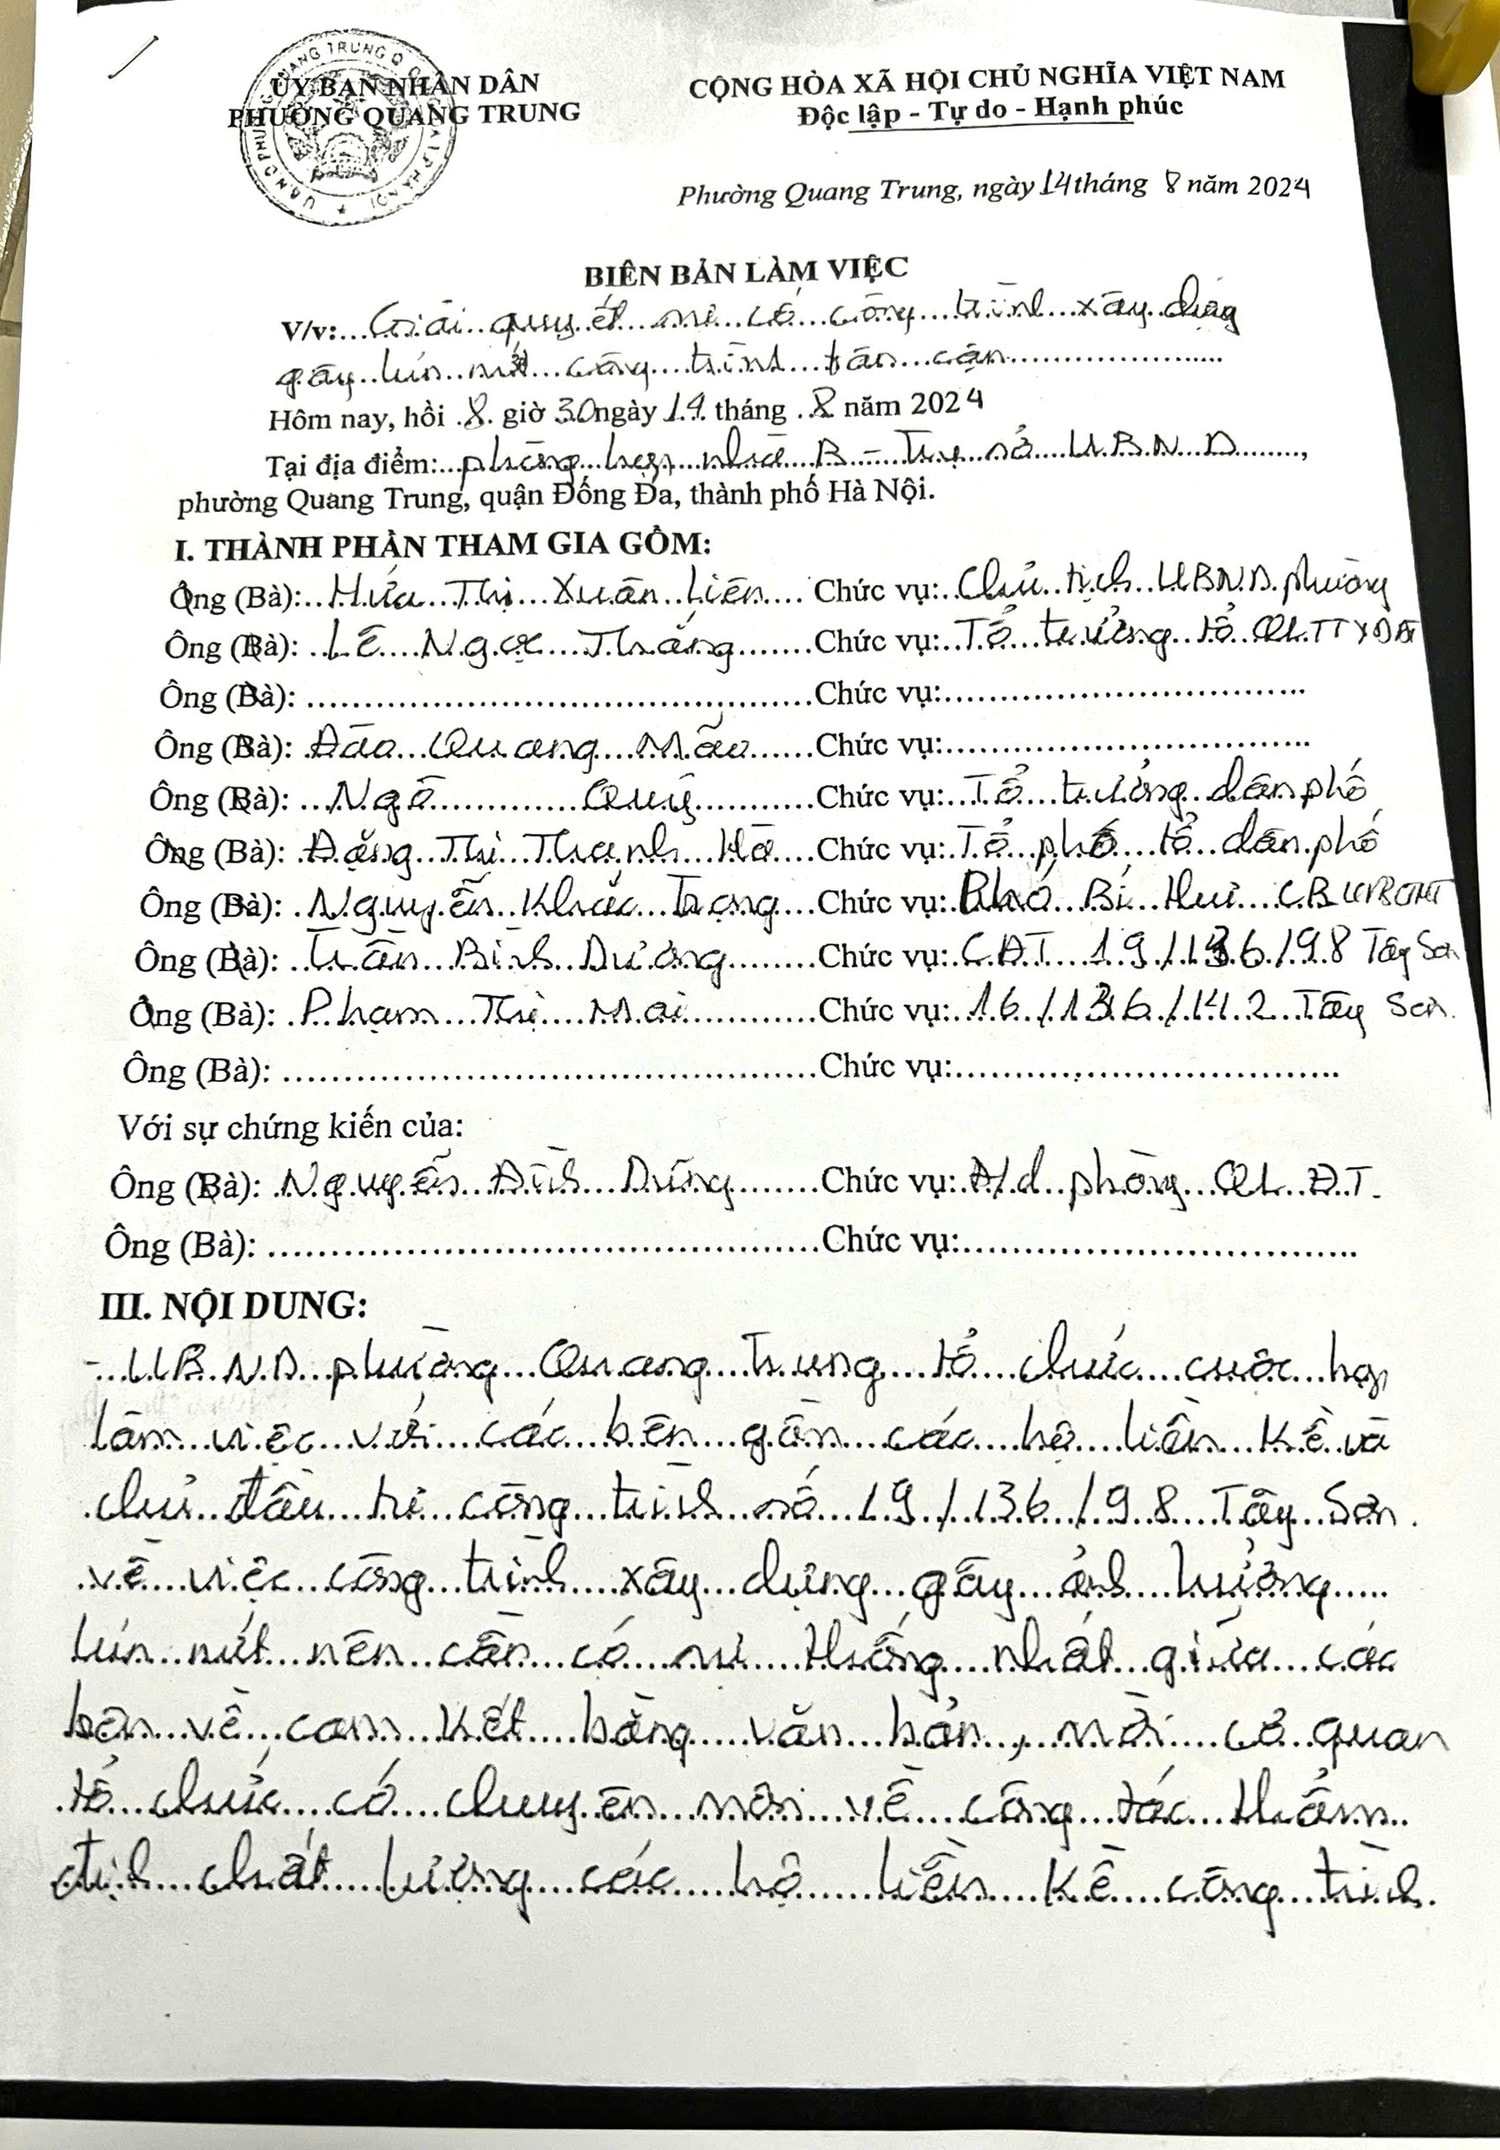 ỦY BAN NHÂN DÂN
PHƯỜNG QUANG TRUNG
CỘNG HÒA XÃ HỘI CHỦ NGHĨA VIỆT NAM
Độc lập - Tự do - Hạnh phúc
Phường Quang Trung, ngày 14 tháng 8 năm 2024
BIÊN BẢN LÀM VIỆC
V/v: Giải quyết sự cố công trình xây dựng
gây lún nứt công trình lân cận
Hôm nay, hồi 8 giờ 30 ngày 14 tháng 8 năm 2024
Tại địa điểm: phòng họp nhà B - Trụ sở UBND,
phường Quang Trung, quận Đống Đa, thành phố Hà Nội.
I. THÀNH PHẦN THAM GIA GỒM:
Ông (Bà): Hứa Thị Xuân Liên Chức vụ: Chủ tịch UBND phường
Ông (Bà): Lê Ngọc Thắng Chức vụ: Tổ trưởng tổ QLTTXDĐT
Ông (Bà): Chức vụ:
Ông (Bà): Đào Quang Mão Chức vụ:
Ông (Bà): Ngô Quý Chức vụ: Tổ trưởng dân phố
Ông (Bà): Đặng Thị Thanh Hà Chức vụ: Tổ phó tổ dân phố
Ông (Bà): Nguyễn Khắc Trọng Chức vụ: Phó Bí thư CB
Ông (Bà): Trần Bình Dương Chức vụ: CĐT 19/136/98 Tây Sơn
Ông (Bà): Phạm Thị Mai Chức vụ: 16/136/142 Tây Sơn.
Ông (Bà): Chức vụ:
Với sự chứng kiến của:
Ông (Bà): Nguyễn Đình Dũng Chức vụ: Đ/d phòng QLĐT.
Ông (Bà): Chức vụ:
III. NỘI DUNG:
- UBND phường Quang Trung tổ chức cuộc họp
làm việc với các bên gồm các hộ liền kề và
chủ đầu tư công trình số 19/136/98 Tây Sơn.
về việc công trình xây dựng gây ảnh hưởng
lún nứt nên cần có sự thống nhất giữa các
bên về cam kết bằng văn bản, mời cơ quan
tổ chức có chuyên môn về công tác thẩm
định chất lượng các hộ liền kề công trình.